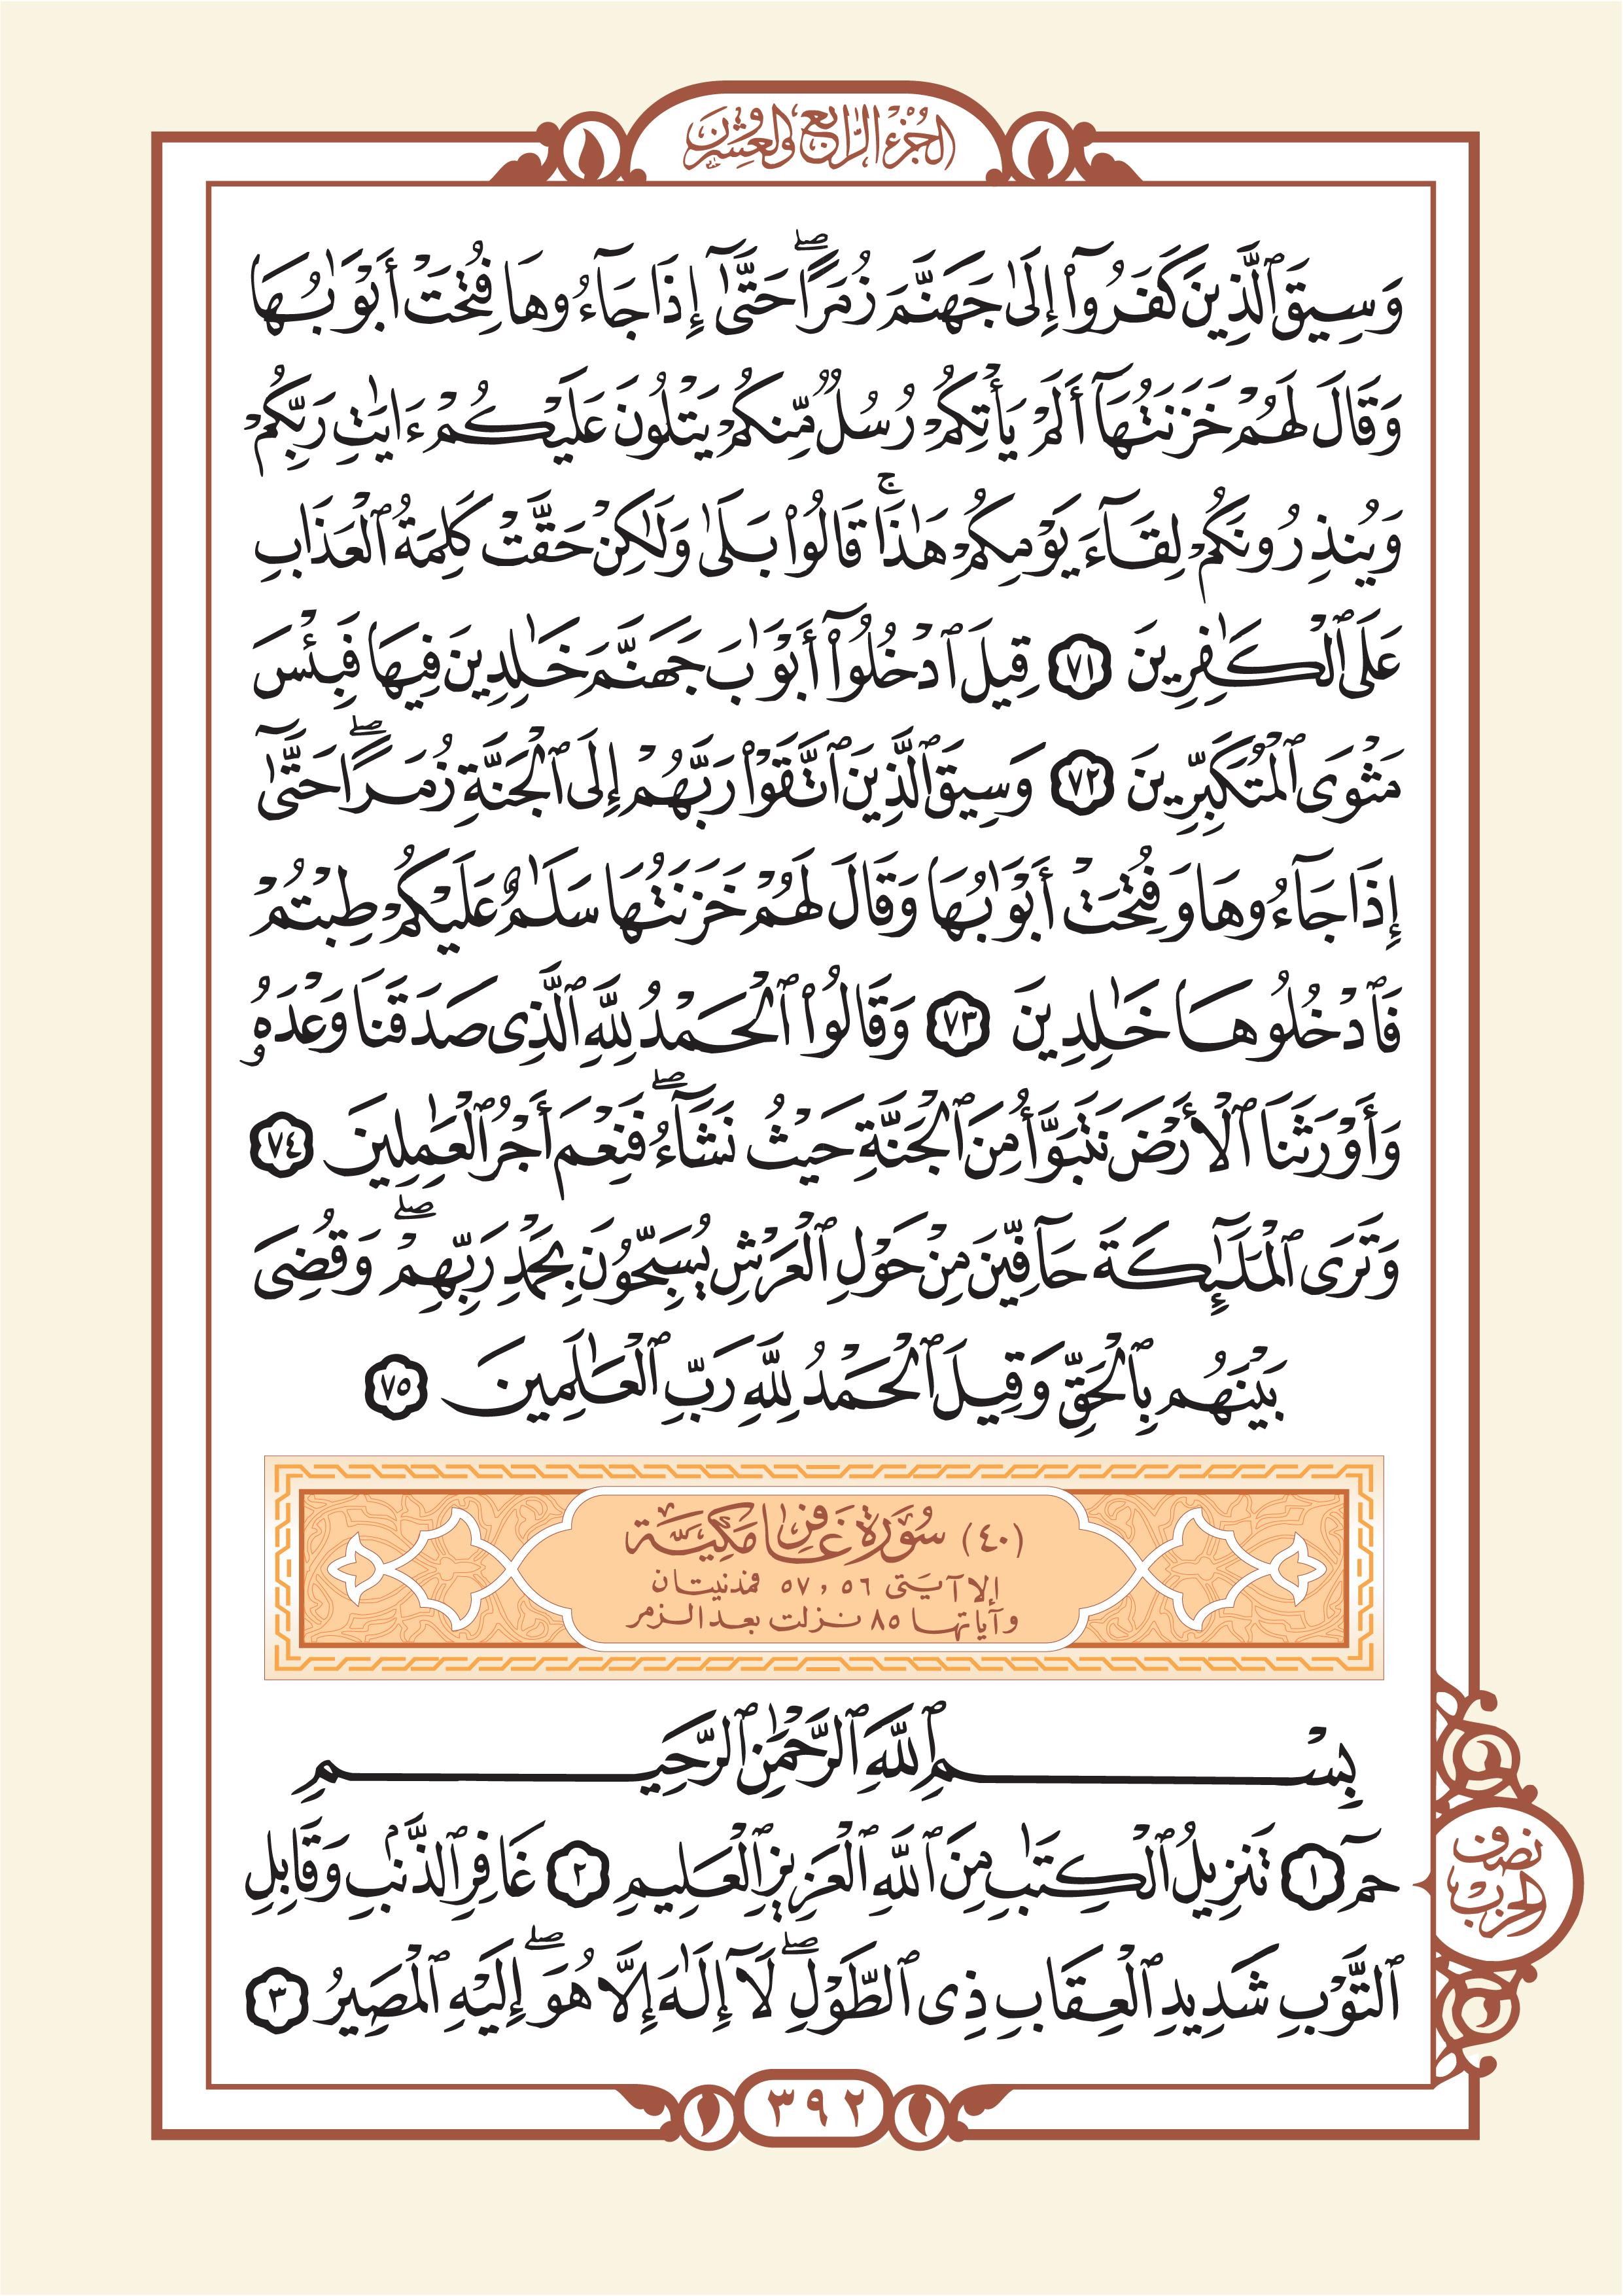 الجزء الرابع والعشرون
وَسِيقَ ٱلَّذِينَ كَفَرُوٓاْ إِلَىٰ جَهَنَّمَ زُمَرًاۖ حَتَّىٰٓ إِذَا جَآءُوهَا فُتِحَتۡ أَبۡوَٰبُهَا
وَقَالَ لَهُمۡ خَزَنَتُهَآ أَلَمۡ يَأۡتِكُمۡ رُسُلٞ مِّنكُمۡ يَتۡلُونَ عَلَيۡكُمۡ ءَايَٰتِ رَبِّكُمۡ
وَيُنذِرُونَكُمۡ لِقَآءَ يَوۡمِكُمۡ هَٰذَاۚ قَالُواْ بَلَىٰ وَلَٰكِنۡ حَقَّتۡ كَلِمَةُ ٱلۡعَذَابِ
عَلَى ٱلۡكَٰفِرِينَ ٧١ قِيلَ ٱدۡخُلُوٓاْ أَبۡوَٰبَ جَهَنَّمَ خَٰلِدِينَ فِيهَا فَبِئۡسَ
مَثۡوَى ٱلۡمُتَكَبِّرِينَ ٧٢ وَسِيقَ ٱلَّذِينَ ٱتَّقَوۡاْ رَبَّهُمۡ إِلَى ٱلۡجَنَّةِ زُمَرًاۖ حَتَّىٰٓ
إِذَا جَآءُوهَا وَفُتِحَتۡ أَبۡوَٰبُهَا وَقَالَ لَهُمۡ خَزَنَتُهَا سَلَٰمٌ عَلَيۡكُمۡ طِبۡتُمۡ
فَٱدۡخُلُوهَا خَٰلِدِينَ ٧٣ وَقَالُواْ ٱلۡحَمۡدُ لِلَّهِ ٱلَّذِي صَدَقَنَا وَعۡدَهُۥ
وَأَوۡرَثَنَا ٱلۡأَرۡضَ نَتَبَوَّأُ مِنَ ٱلۡجَنَّةِ حَيۡثُ نَشَآءُۖ فَنِعۡمَ أَجۡرُ ٱلۡعَٰمِلِينَ ٧٤
وَتَرَى ٱلۡمَلَٰٓئِكَةَ حَآفِّينَ مِنۡ حَوۡلِ ٱلۡعَرۡشِ يُسَبِّحُونَ بِحَمۡدِ رَبِّهِمۡۖ وَقُضِيَ
بَيۡنَهُم بِٱلۡحَقِّ وَقِيلَ ٱلۡحَمۡدُ لِلَّهِ رَبِّ ٱلۡعَٰلَمِينَ ٧٥
(٤٠) سُورَة غَافِر مَكِّيَّة
إلا آيتى ٥٦ , ٥٧ فمدنيتان
وآياتها ٨٥ نزلت بعد الزمر
بِسۡمِ ٱللَّهِ ٱلرَّحۡمَٰنِ ٱلرَّحِيمِ
حمٓ ١ تَنزِيلُ ٱلۡكِتَٰبِ مِنَ ٱللَّهِ ٱلۡعَزِيزِ ٱلۡعَلِيمِ ٢ غَافِرِ ٱلذَّنۢبِ وَقَابِلِ
ٱلتَّوۡبِ شَدِيدِ ٱلۡعِقَابِ ذِي ٱلطَّوۡلِۖ لَآ إِلَٰهَ إِلَّا هُوَۖ إِلَيۡهِ ٱلۡمَصِيرُ ٣
نصف
الحزب
٣٩٢